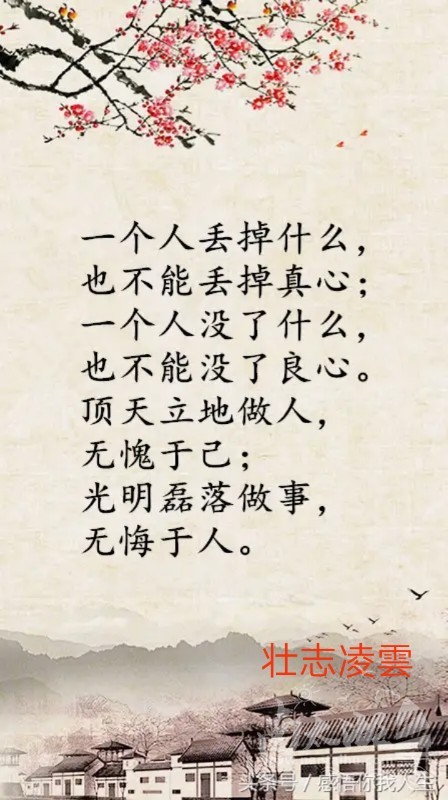 一个人丢掉什么，
也不能丢掉真心；
一个人没了什么，
也不能没了良心。
顶天立地做人，
无愧于己；
光明磊落做事，
无悔于人。
壮志凌雲
头条号 / 感悟你我人生